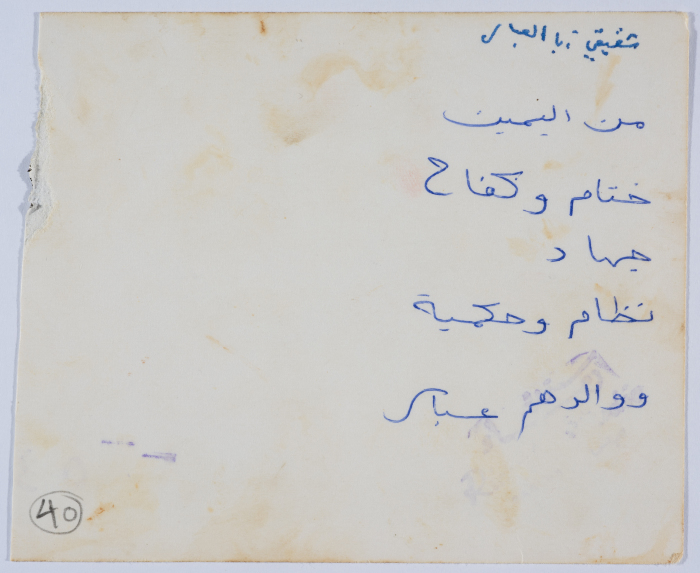 شفيقي: با العباس
من اليمين
ختام وكفاح
جهاد
نظام وحكمية
ووالدهم عباس
40